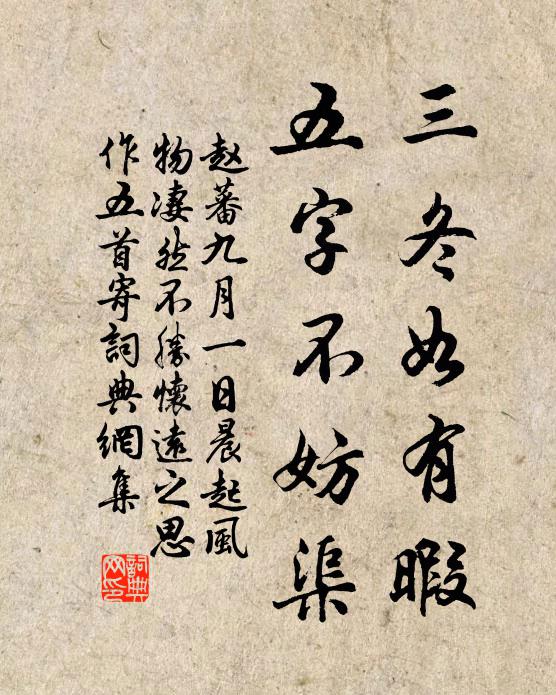 三冬如有暇
五字不妨渠
赵蕃九月一日晨起風
物凄然不勝懷遠之思
作五首寄詞典網集
詞典
网印